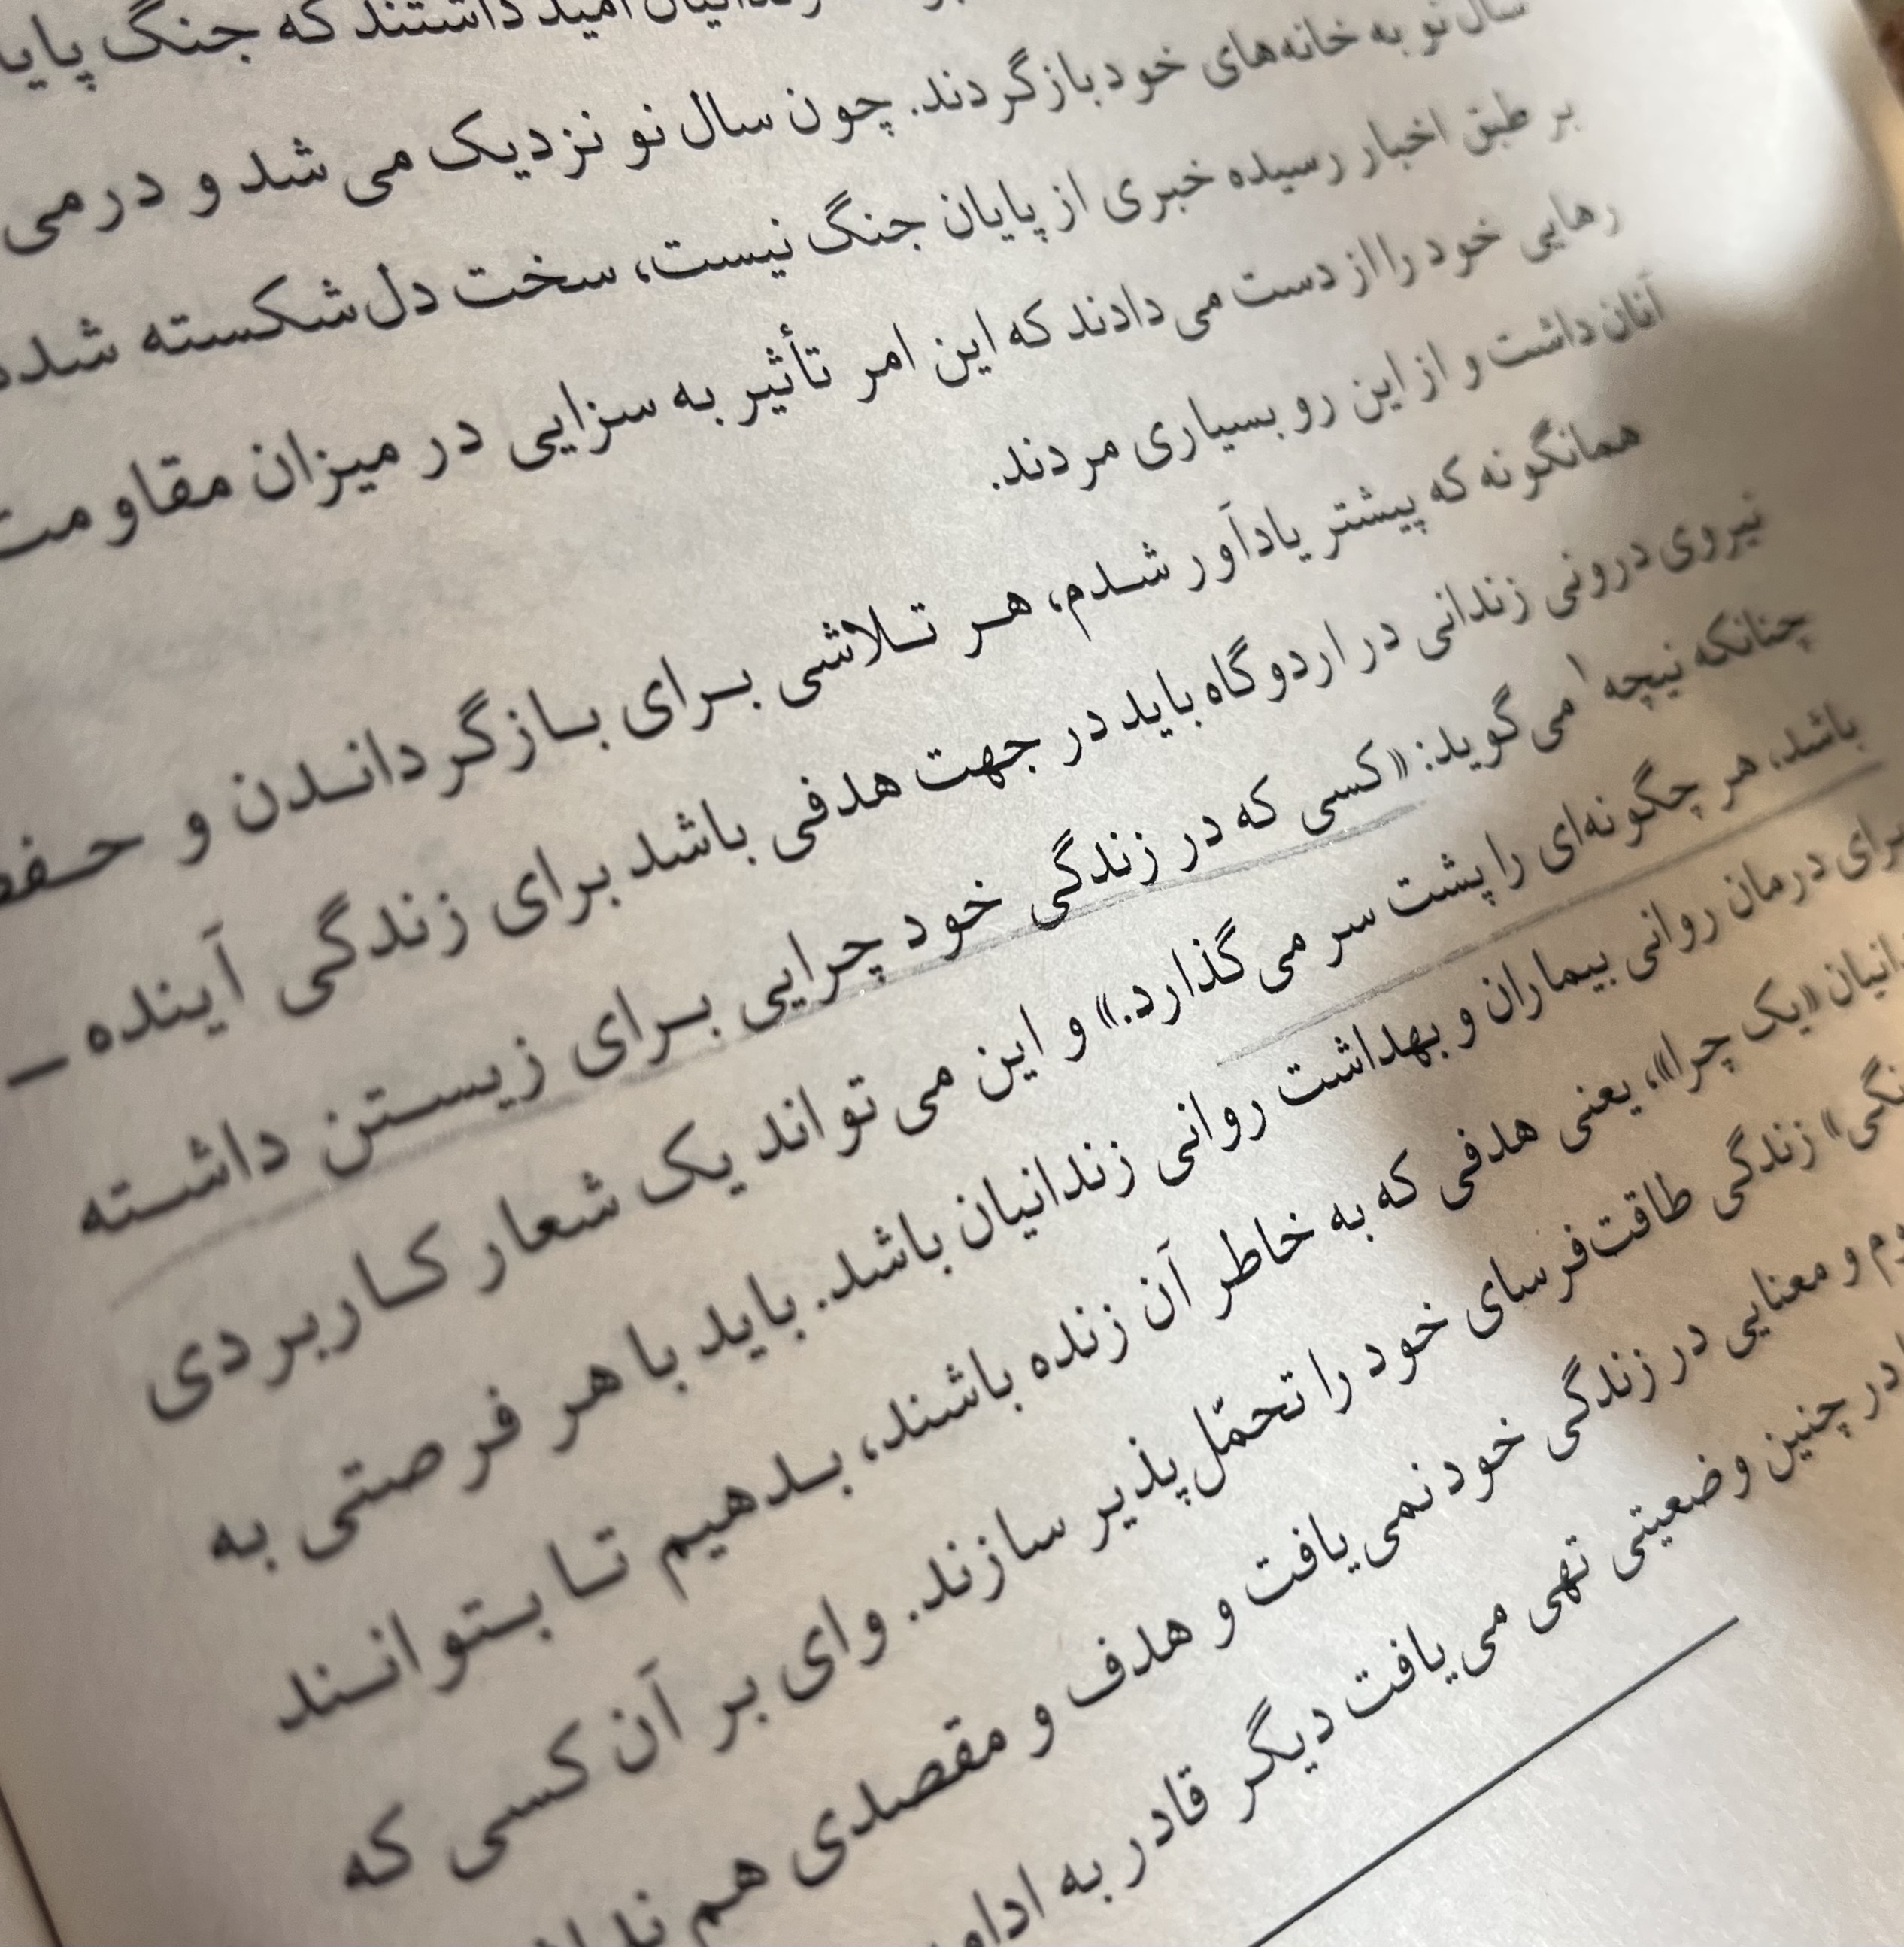 امید داشتند که جنگ
سال نو به خانه‌های خود بازگردند. چون سال نو نزدیک می شد و در می
بر طبق اخبار رسیده خبری از پایان جنگ نیست، سخت دل‌شکسته
رهایی خود را از دست می دادند که این امر تأثیر به سزایی در میزان مقاومت
آنان داشت و از این رو بسیاری مردند.
همانگونه که پیشتر یادآور شدم، هر تلاشی برای بازگرداندن و
نیروی درونی زندانی در اردوگاه باید در جهت هدفی باشد برای زندگی آینده ـ
چنانکه نیچه۱ می‌گوید: «کسی که در زندگی خود چرایی برای زیستن داشته
باشد، هر چگونه‌ای را پشت سر می‌گذارد.» و این می تواند یک شعار کاربردی
درمان روانی بیماران و بهداشت روانی زندانیان باشد. باید با هر فرصتی به
«یک چرا»، یعنی هدفی که به خاطر آن زنده باشند، بدهیم تا بتوانند
زندگی طاقت‌فرسای خود را تحمّل‌پذیر سازند. وای بر آن کسی که
و معنایی در زندگی خود نمی یافت و هدف و مقصدی هم
در چنین وضعیتی تهی می یافت دیگر قادر به